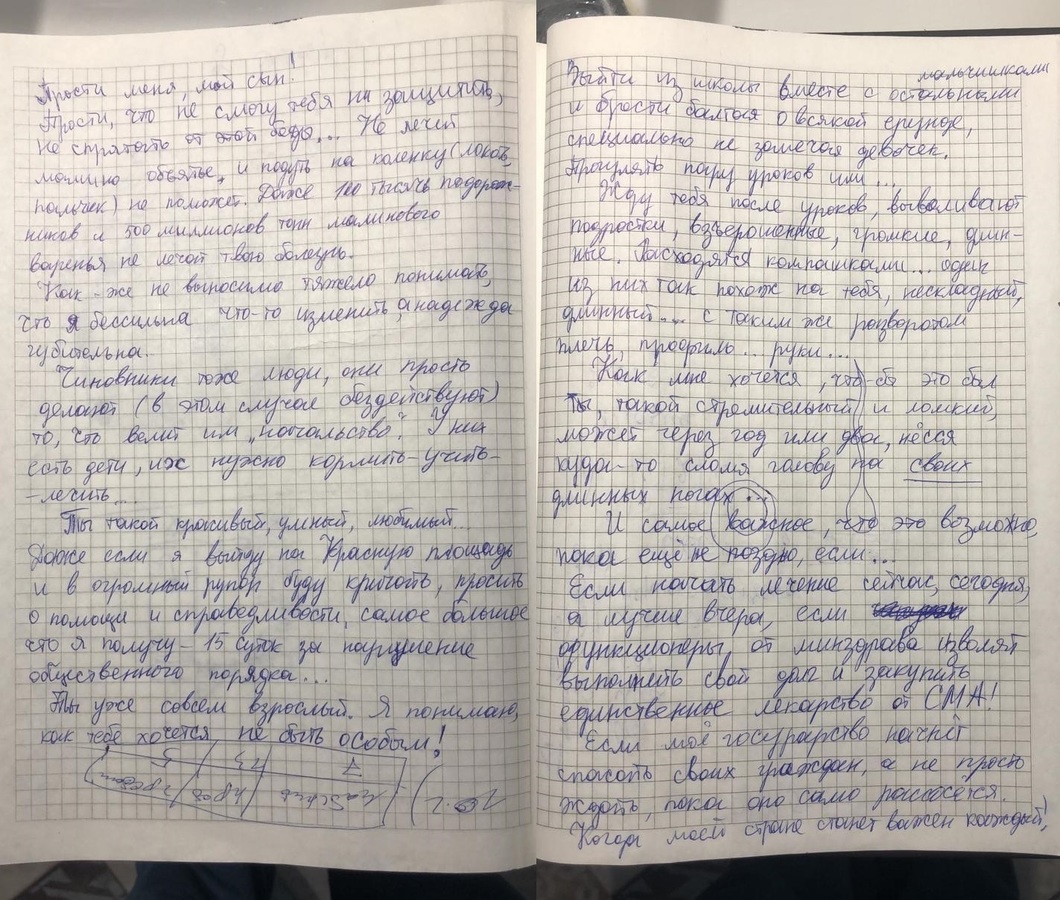 Прости меня, мой сын!
Прости, что не смогу тебя ни защитить,
не спрятать от этой беды... Не лечит
мамино объятье, и подуть на коленку (локоть,
пальчик) не поможет. Даже 100 тысяч подорож-
ников и 500 миллионов тонн малинового
варенья не лечат твою болезнь.
Как-же не выносимо тяжело понимать,
что я бессильна что-то изменить, а надежда
губительна..
Чиновники тоже люди, они просто
делают (в этом случае бездействуют)
то, что велит им „начальство". У них
есть дети, их нужно кормить-учить-
-лечить....
Ты такой красивый, умный, любимый...
Даже если я выйду на Красную площадь
и в огромный рупор буду кричать, просить
о помощи и справедливости, самое большое
что я получу - 15 суток за нарушение
общественного порядка...
Ты уже совсем взрослый. Я понимаю,
как тебе хочется не быть особым!
7 / 13 / 5
Выйти из школы вместе с остальными мальчишками
и брости болтая о всякой ерунде,
специально не замечая девочек.
Прогулять пару уроков или...
Жду тебя после уроков, вываливают
подростки, взъерошенные, громкие, длин-
ные. Расходятся компашками... один
из них так похож на тебя, нескладный,
длинный.... с таким же разворотом
плеч, профиль... руки...
Как мне хочется, что-бы это был
ты, такой стремительный и ломкий,
может через год или два, нёсся
куда-то сломя голову на своих
длинных ногах...
И самое важное, что это возможно,
пока ещё не поздно, если...
Если начать лечение сейчас, сегодня,
а лучше вчера, если
функционеры от минздрава изволят
выполнить свой долг и закупить
единственное лекарство от СМА!
Если моё государство начнёт
спасать своих граждан, а не просто
ждать, пока оно само рассосётся.
Когда моей стране станет важен каждый!